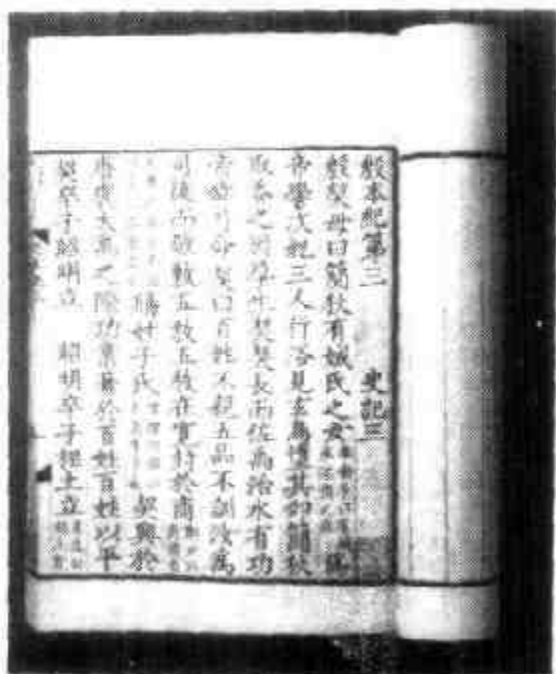 殷本紀第三 史記三
殷契母曰簡狄有娀氏之女 爲
帝嚳次妃三人行浴見玄鳥墮其卵簡狄
取吞之因孕生契契長而佐禹治水有功
帝舜乃命契曰百姓不親五品不訓汝爲
司徒而敬敷五教五教在寬封於商
賜姓子氏 契興於
唐虞大禹之際功業著於百姓百姓以平
契卒子昭明立 昭明卒子相土立